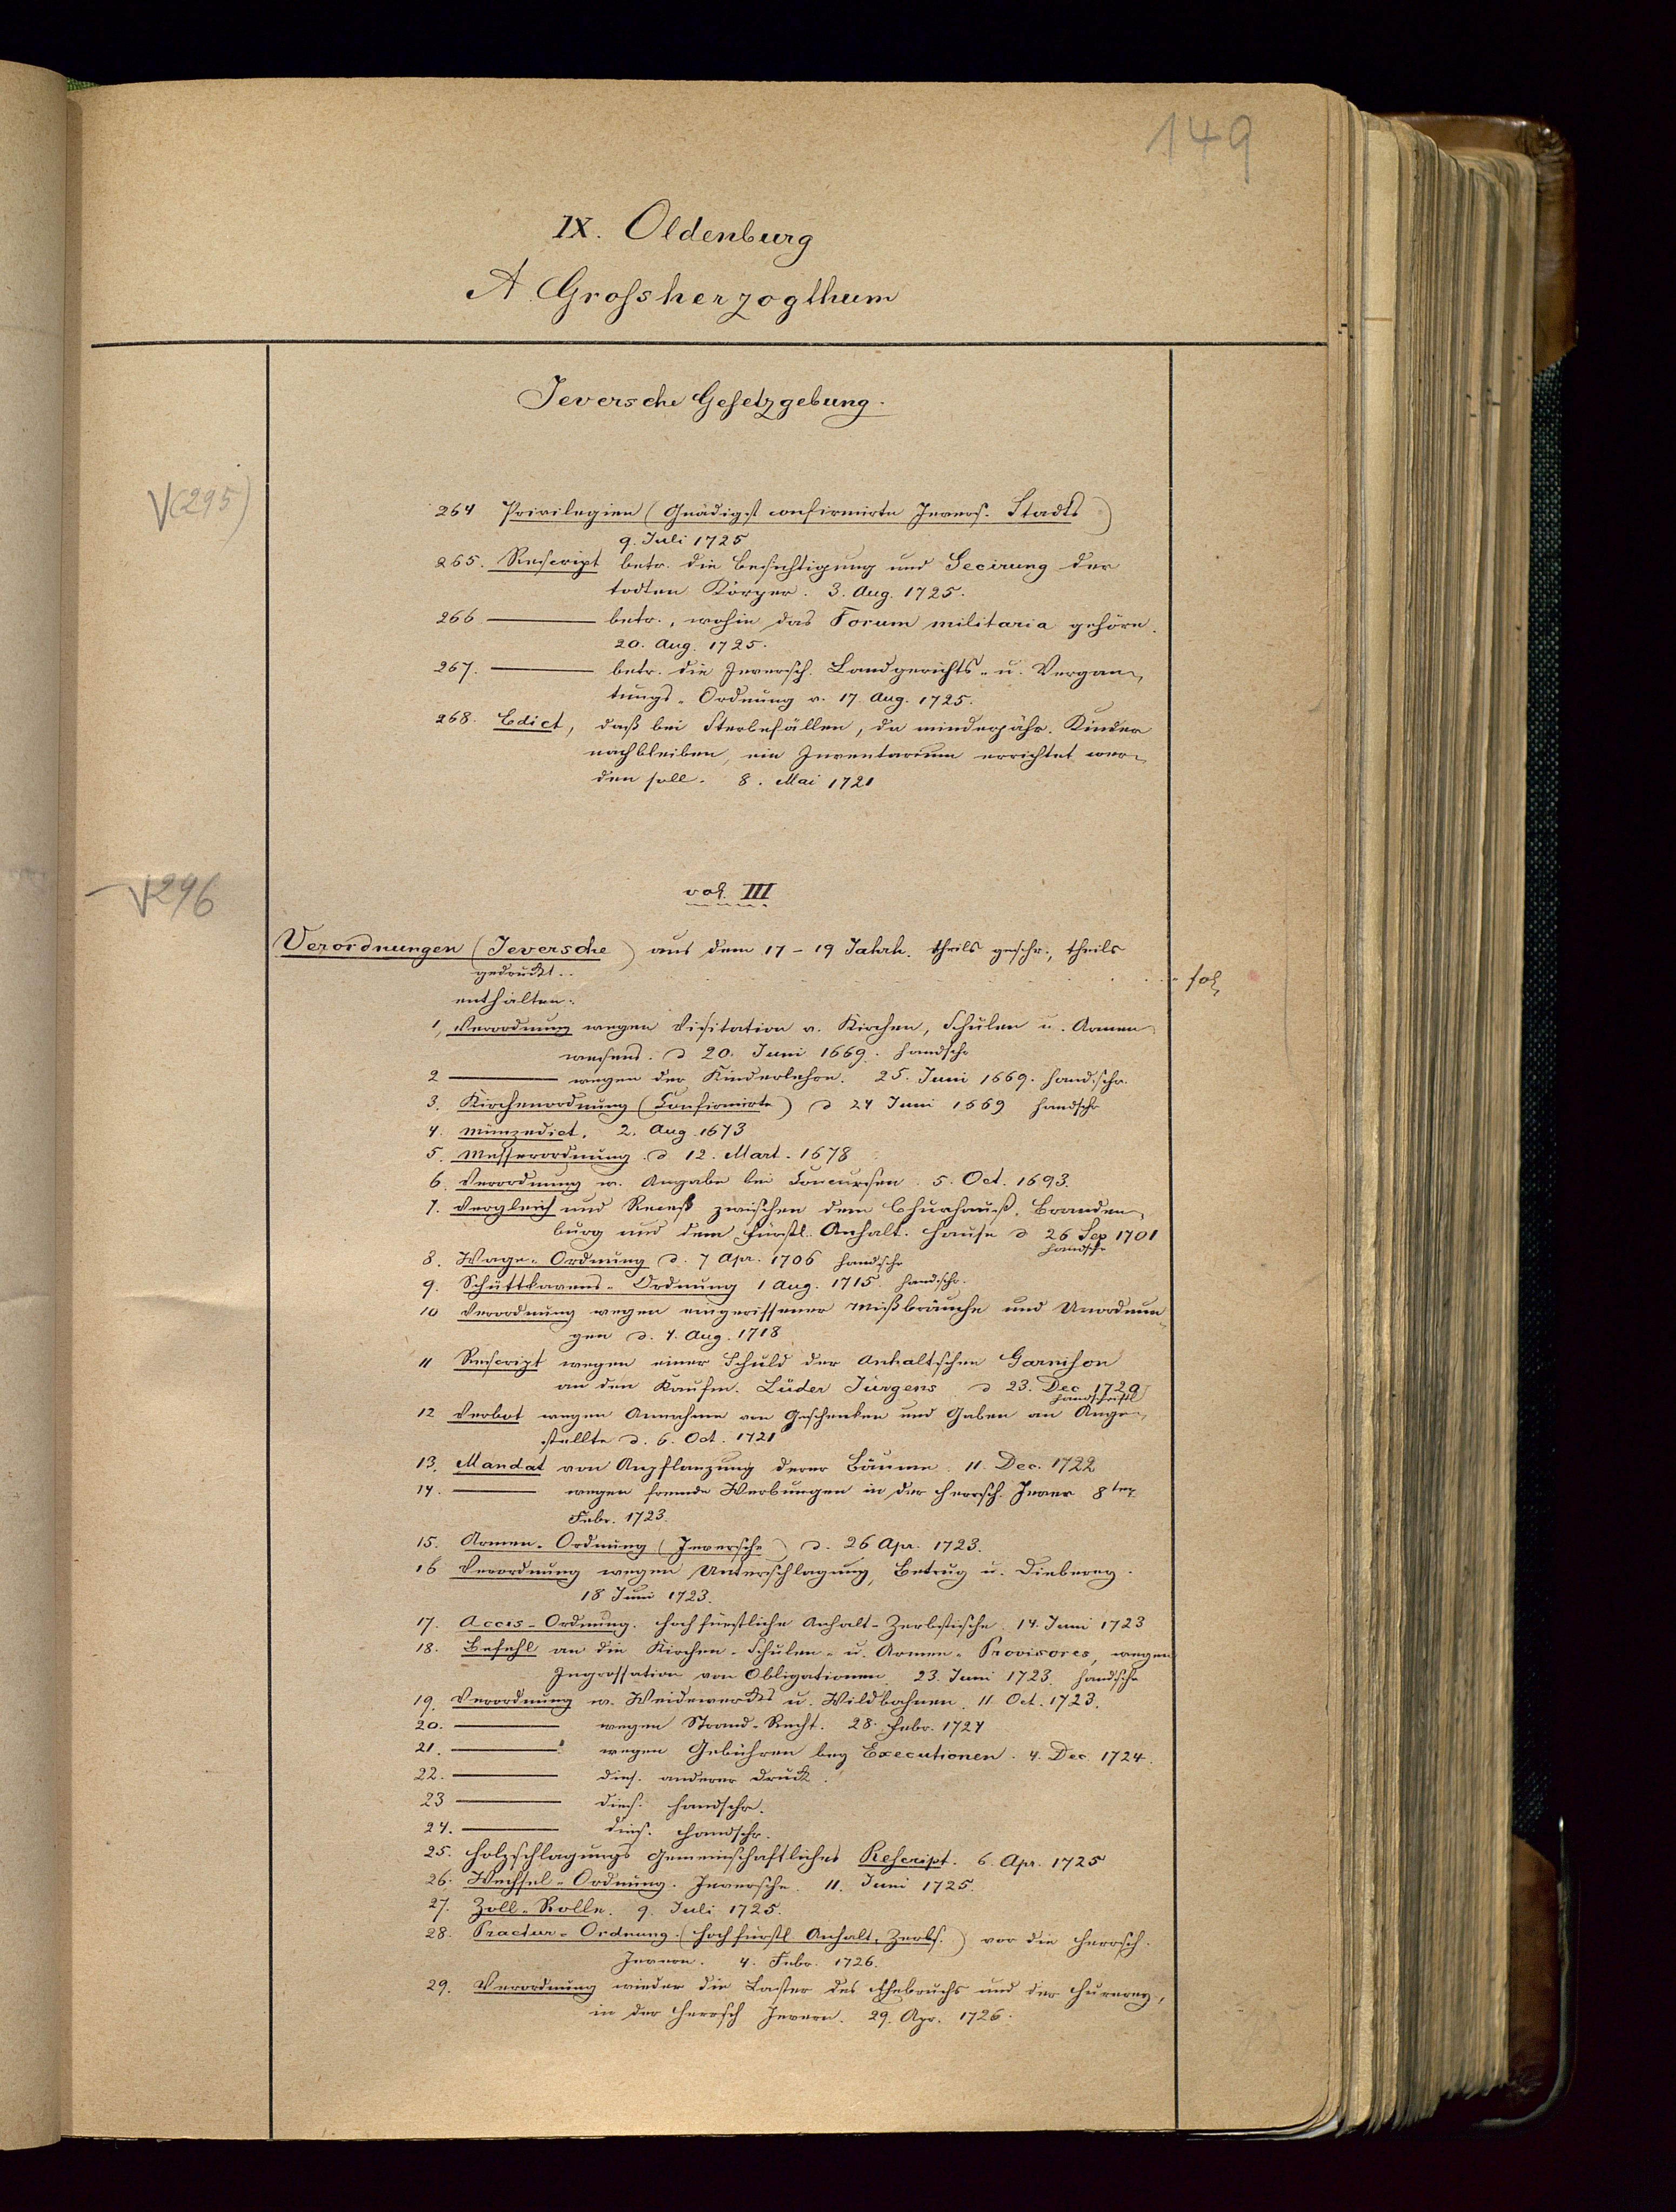 149
IX. Oldenburg
A. Grossherzogthum
Jeversche Gesetzgebung.
V(295)
264 Privilegien (Gnädigst confirmirte Jevers. Stadts)
9. Juli 1725
265. Rescript betr. die Besichtigung und Secirung der
todten Körper. 3. Aug. 1725.
266 ——— betr., wohin das Forum militaria gehöre.
20. Aug. 1725.
267. ——— betr. die Jeversch. Landgerichts- u. Vergan-
tungs-Ordnung v. 17. Aug. 1725.
268. Edict, daß bei Sterbefällen, da minderjähr. Kinder
nachbleiben, ein Inventarium errichtet wer-
den soll. 8. Mai 1721
V296
vol. III
Verordnungen (Jeversche) aus dem 17-19 Jahrh. theils geschr., theils
gedruckt. fol.
enthalten:
1, Verordnung wegen Visitation v. Kirchen, Schulen u. Armen
wesens. d 20. Juni 1669. handschr
2 ——— wegen der Kinderlehre. 25. Juni 1669. handschr.
3. Kirchenordnung (Confirmirte) d 24 Juni 1669 handschr
4. Münzedict. 2. Aug 1673
5. Messerordnung d 12. Mart. 1678
6. Verordnung w. Angabe bei Concursen. 5. Oct. 1693.
7. Vergleich und Receß zwischen dem Churhauß. Branden-
burg und dem Fürstl. Anhalt. Hause d 26 Sep 1701
handschr
8. Wage-Ordnung d. 7 Apr. 1706 handschr
9. Schüttkavens-Ordnung 1 Aug. 1715. handschr.
10 Verordnung wegen eingerissener Mißbräuche und Unordnun-
gen d. 4. Aug. 1718
11 Rescript wegen einer Schuld der Anhaltschen Garnison
an den Kaufm. Lüder Jürgens d 23. Dec 1720
handschriftl
12 Verbot wegen Annahme von Geschenken und Gaben an Ange-
stellte d. 6. Oct. 1721
13. Mandat von Anpflanzung derer Bäume. 11. Dec. 1722
14. ——— wegen fremde Werbungen in der Herrsch. Jever 8ten
Febr. 1723.
15. Armen-Ordnung (Jeversche) d. 26 Apr. 1723.
16 Verordnung wegen Unterschlagung, Betrug u. Dieberey.
18 Juni 1723.
17. Accis-Ordnung. Hochfürstliche Anhalt-Zerbstische. 14. Juni 1723
18. Befehl an die Kirchen-Schulen- u. Armen-Provisores, wegen
Ingrossation von Obligationen. 23. Juni 1723. handschr
19. Verordnung w. Weidewerks u. Wildbahnen. 11. Oct. 1723.
20. ——— wegen Strand-Recht. 28. Febr. 1724
21. ——— wegen Gebühren bey Executionen. 4. Dec. 1724.
22. ——— dies. anderer Druck.
23 ——— dies. handschr.
24. ——— dies. handschr.
25. Holzschlagungs gemeinschaftliches Rescript. 6. Apr. 1725
26. Wechsel-Ordnung. Jeversche. 11. Juni 1725.
27. Zoll-Rolle. 9. Juli 1725.
28. Tractur-Ordnung. (Hochfürstl. Anhalt. Zerbs.) vor die Herrsch.
Jevern. 4. Febr. 1726.
29. Verordnung wieder die Laster des Ehebruchs und der Hurerey,
in der Herrsch Jevern. 29. Apr. 1726.